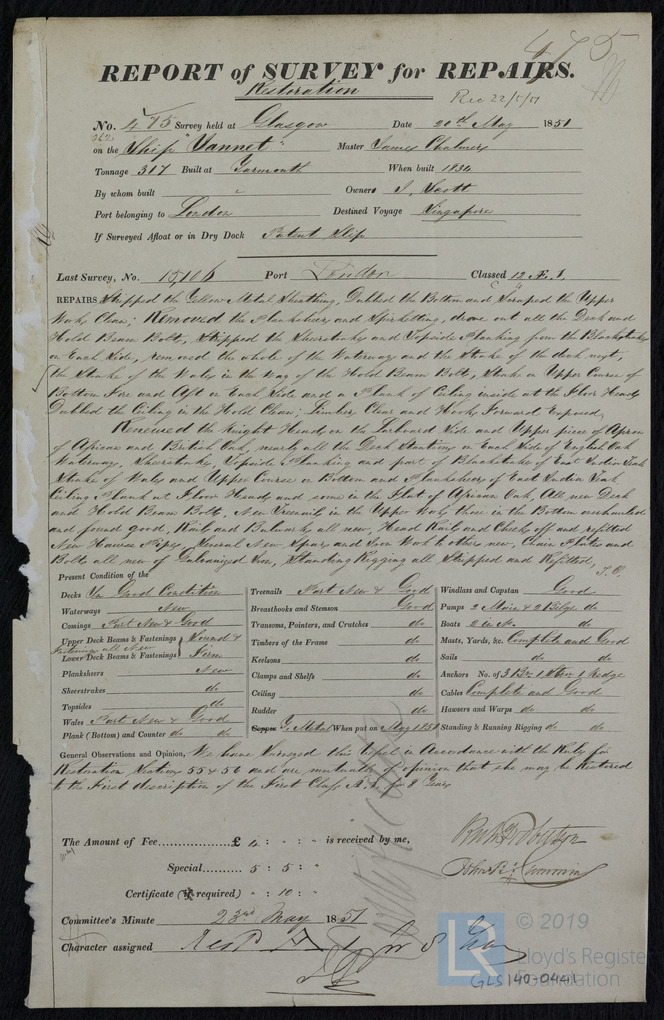 475
REPORT of SURVEY for REPAIRS.
Restoration
Rec 22/5/51
No. 475 Survey held at Glasgow Date 20th May 1851
on the Ship "Vannet" Master James Chalmers
Tonnage 317 Built at Yarmouth When built 1834
By whom built Owners J. Scott
Port belonging to London Destined Voyage Singapore
If Surveyed Afloat or in Dry Dock Patent Slip
Last Survey, No. 15,106 Port London Classed 12 Æ. 1.
REPAIRS Stripped the Yellow Metal Sheathing, Dubbed the Bottom and Scraped the Upper
Works Clean; Removed the Planksheers and Spirketting, drove out all the Deck and
Hold Beam Bolts, Stripped the Sheerstrakes and Topside Planking from the Blackstrakes
on Each Side, removed the whole of the Waterways and the Strake of the deck next,
the Strake of the Wales in the way of the Hold Beam Bolts, Strake on Upper Course of
Bottom Fore and Aft on Each Side and a Plank of Ceiling inside at the Floor Heads
Dubbed the Ceiling in the Hold Clean; Timbers Clear and Hooks Forward Exposed,
Renewed the Knight Heads on the Larboard Side and Upper piece of Apron
of African and British Oak, nearly all the Deck Stantions on Each Side of English Oak
Waterways, Sheerstrakes, Topside Planking and part of Blackstrakes of East Indian Teak
Strake of Wales and Upper Course on Bottom and Planksheers of East Indian Teak
Ceiling Plank at Floor Heads and some in the Flat of African Oak, All new Deck
and Hold Beam Bolts, New Treenails in the Upper Works, those in the Bottom overhauled
and found good, Rails and Bulwarks all new, Head Rails and Cheeks off and refitted
New Hawse Pipes, Several New Spars and Iron Work to others new, Chain Plates and
Bolts all new of Galvanized Iron, Standing Rigging all Stripped and Refitted,
Present Condition of the
Decks In Good Condition
Waterways New
Comings Part New & Good
Upper Deck Beams & Fastenings Sound &
Fastenings all New
Lower Deck Beams & Fastenings Firm
Planksheers New
Sheerstrakes do
Topsides do
Wales Part New & Good
Plank (Bottom) and Counter do do
Treenails Part New & Good
Breasthooks and Stemson Good
Transoms, Pointers, and Crutches do
Timbers of the Frame do
Keelsons do
Clamps and Shelfs do
Ceiling do
Rudder do
Copper Y. Metal When put on May 1851
Windlass and Capstan Good
Pumps 2 Main & 2 Bilge do
Boats 2 in No. do
Masts, Yards, &c. Complete and Good
Sails do do
Anchors No. of 3 Br. 1 Strm 1 Kedge
Cables Complete and Good
Hawsers and Warps do do
Standing & Running Rigging do do
General Observations and Opinion, We have Surveyed this Vessel in Accordance with the Rules for
Restoration Sections 55 & 56 and are mutually of opinion that she may be Restored
to the First description of the First Class A. 1. for 8 Years
The Amount of Fee £ 4 : " : " is received by me,
Special 5 : 5 : "
Certificate (if required) " : 10 : "
Committee's Minute 23rd May 1851
Character assigned
© 2019
LR
Lloyd's Register
Foundation
GLS140-0441